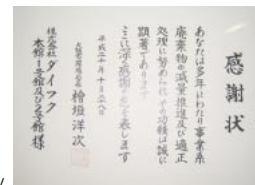 感謝状
あなたは多年にわたり事業系
廃棄物の減量推進及び適正
処理に努められその功績は誠に
顕著であります
ここに深く感謝の意を表します
平成二十年十月二十八日
大阪市環境局長 檜垣洋次
株式会社ダイフク
本館1号館及び2号館様